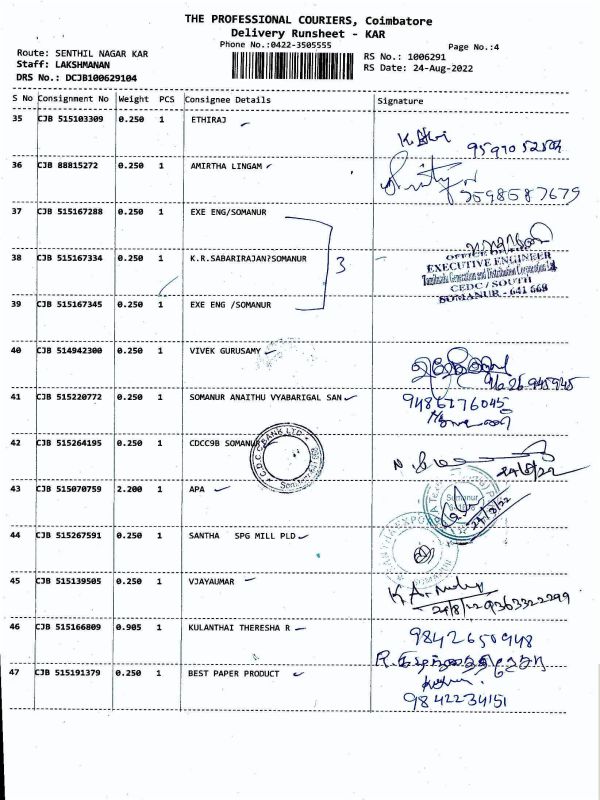 THE PROFESSIONAL COURIERS, Coimbatore
Delivery Runsheet - KAR
Phone No.:0422-3505555
Page No.:4
Route: SENTHIL NAGAR KAR
RS No.: 1006291
Staff: LAKSHMANAN
RS Date: 24-Aug-2022
DRS No.: DCJB100629104
S No Consignment No Weight PCS Consignee Details Signature
35 CJB 515103309 0.250 1 ETHIRAJ
36 CJB 88815272 0.250 1 AMIRTHA LINGAM
9598587679
37 CJB 515167288 0.250 1 EXE ENG/SOMANUR
38 CJB 515167334 0.250 1 K.R.SABARIRAJAN?SOMANUR 3
EXECUTIVE ENGINEER
Tamilnadu Generation and Distribution Corporation Ltd
CEDC / SOUTH
SOMANUR - 641 668
39 CJB 515167345 0.250 1 EXE ENG /SOMANUR
40 CJB 514942300 0.250 1 VIVEK GURUSAMY
41 CJB 515220772 0.250 1 SOMANUR ANAITHU VYABARIGAL SAN
9486276045
42 CJB 515264195 0.250 1 CDCC9B SOMANUR
C.D.C.C. BANK LTD.
24/8/22
43 CJB 515070759 2.200 1 APA
Somanur
24/8/22
44 CJB 515267591 0.250 1 SANTHA SPG MILL PLD
45 CJB 515139505 0.250 1 VJAYAUMAR
24/8/22 9363322299
46 CJB 515166809 0.905 1 KULANTHAI THERESHA R
9842650948
47 CJB 515191379 0.250 1 BEST PAPER PRODUCT
9842234151